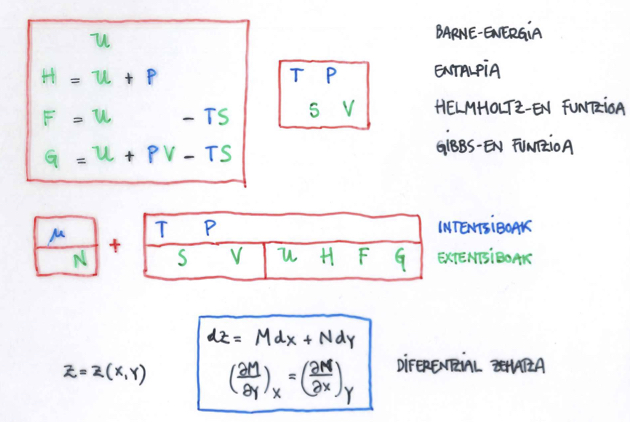 U
H = U + P
F = U - TS
G = U + PV - TS
T P
S V
BARNE-ENERGIA
ENTALPIA
HELMHOLTZ-EN FUNTZIOA
GIBBS-EN FUNTZIOA
μ
N
+
T P
S V U H F G
INTENTSIBOAK
EXTENTSIBOAK
z = z(x,y)
dz = Mdx + Ndy
(∂M/∂y)x = (∂N/∂x)y
DIFERENTZIAL ZEHATZA